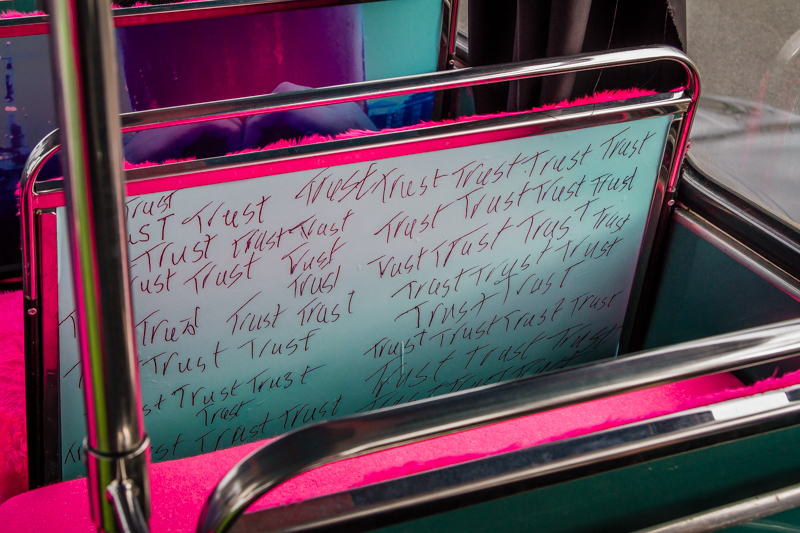 Trust Trust Trust Trust Trust Trust
Trust Trust Trust Trust Trust Trust
Trust Trust Trust Trust Trust Trust Trust
Trust Trust Trust Trust Trust Trust Trust
Trust Trust Trust Trust
Trust Trust Trust Trust Trust
Trust Trust Trust Trust Trust Trust
Trust Trust Trust Trust Trust
Trust Trust
Trust Trust